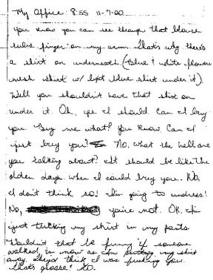 My Office 8:55 11-7-00
You know you can see through that blouse
your finger on my arm. That's why there's
a shirt on underneath (blue & white flower
mesh shirt w/ light blue shirt under it)
Well you shouldn't have that shirt on
under it. Oh, yes I should. Can I buy
you? Buy me what? You know Can I
just buy you? No. What the hell are
you talking about? It should be like the
olden days when I could buy you. No,
I don't think so! I'm going to undress!
No, you're not. OK. I'm
just tucking my shirt in my pants
Wouldn't that be funny if someone
walked in now as I'm putting my shirt
away they'd think I was
that's gross! No.